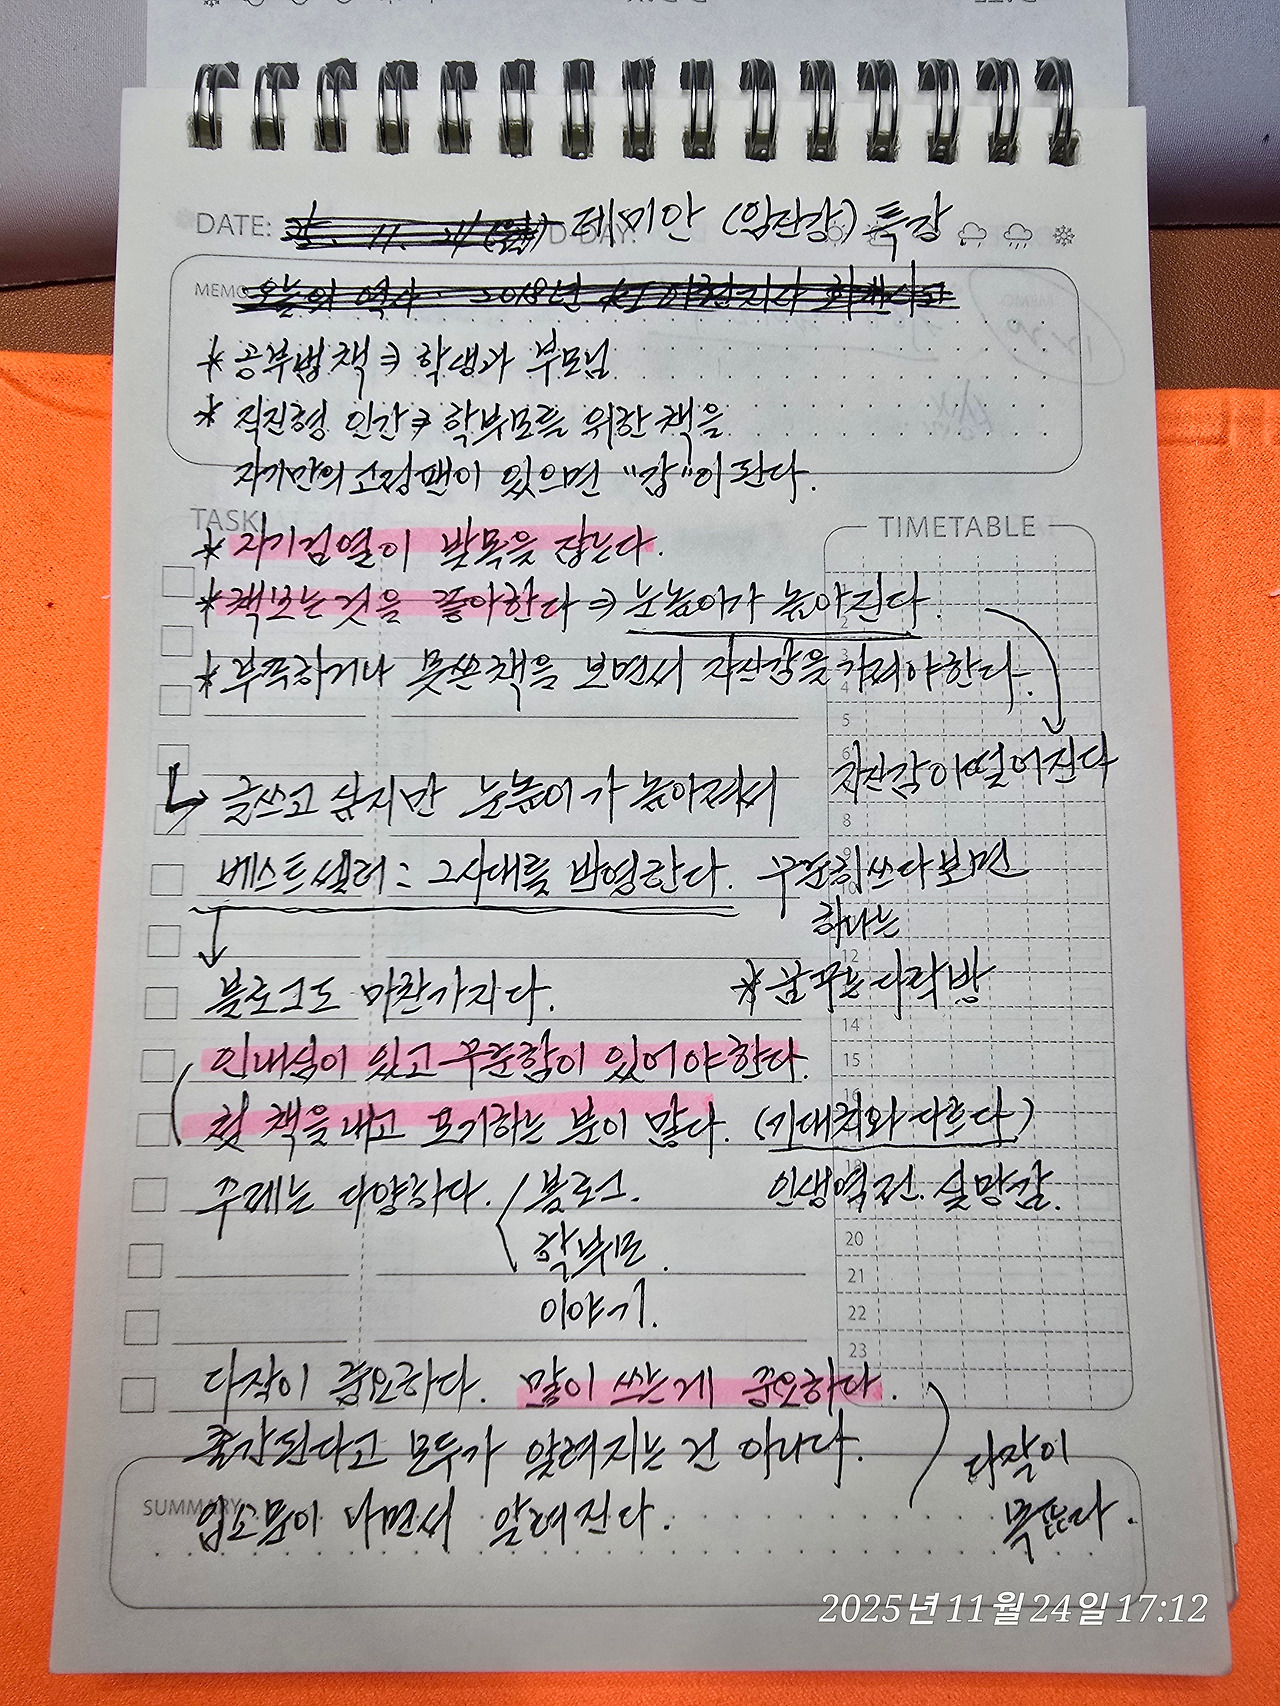 DATE: 25. 11. 24 (월) D-DAY: 데미안 (임단강) 특강
MEMO 오늘의 역사 2018년
* 공부법책 ⇒ 학생과 부모님
* 직진형 인간 ⇒ 학부모를 위한 책을
자기만의 고정팬이 있으면 "갑"이 된다.
TASK
TIMETABLE
* 자기검열이 발목을 잡는다.
* 책보는 것을 좋아한다 ⇒ 눈높이가 높아진다.
* 부족하거나 못쓴책을 보면서 자신감을 가져야한다.
자신감이 떨어진다
글쓰고 싶지만 눈높이가 높아져서
베스트셀러: 그시대를 반영한다. 꾸준히쓰다보면
하나는
블로그도 마찬가지다. * 꿈꾸는다락방
인내심이 있고 꾸준함이 있어야한다.
첫 책을 내고 포기하는 분이 많다. (기대치와 다르다)
주제는 다양하다. 블로그. 인생역전. 실망감.
학부모.
이야기.
다작이 중요하다. 많이 쓰는게 중요하다.
출간된다고 모두가 알려지는 건 아니다.
다작이
SUMMARY 입소문이 나면서 알려진다.
목표다.
5
6
8
9
10
12
14
15
16
20
21
22
23
2025년 11월 24일 17:12